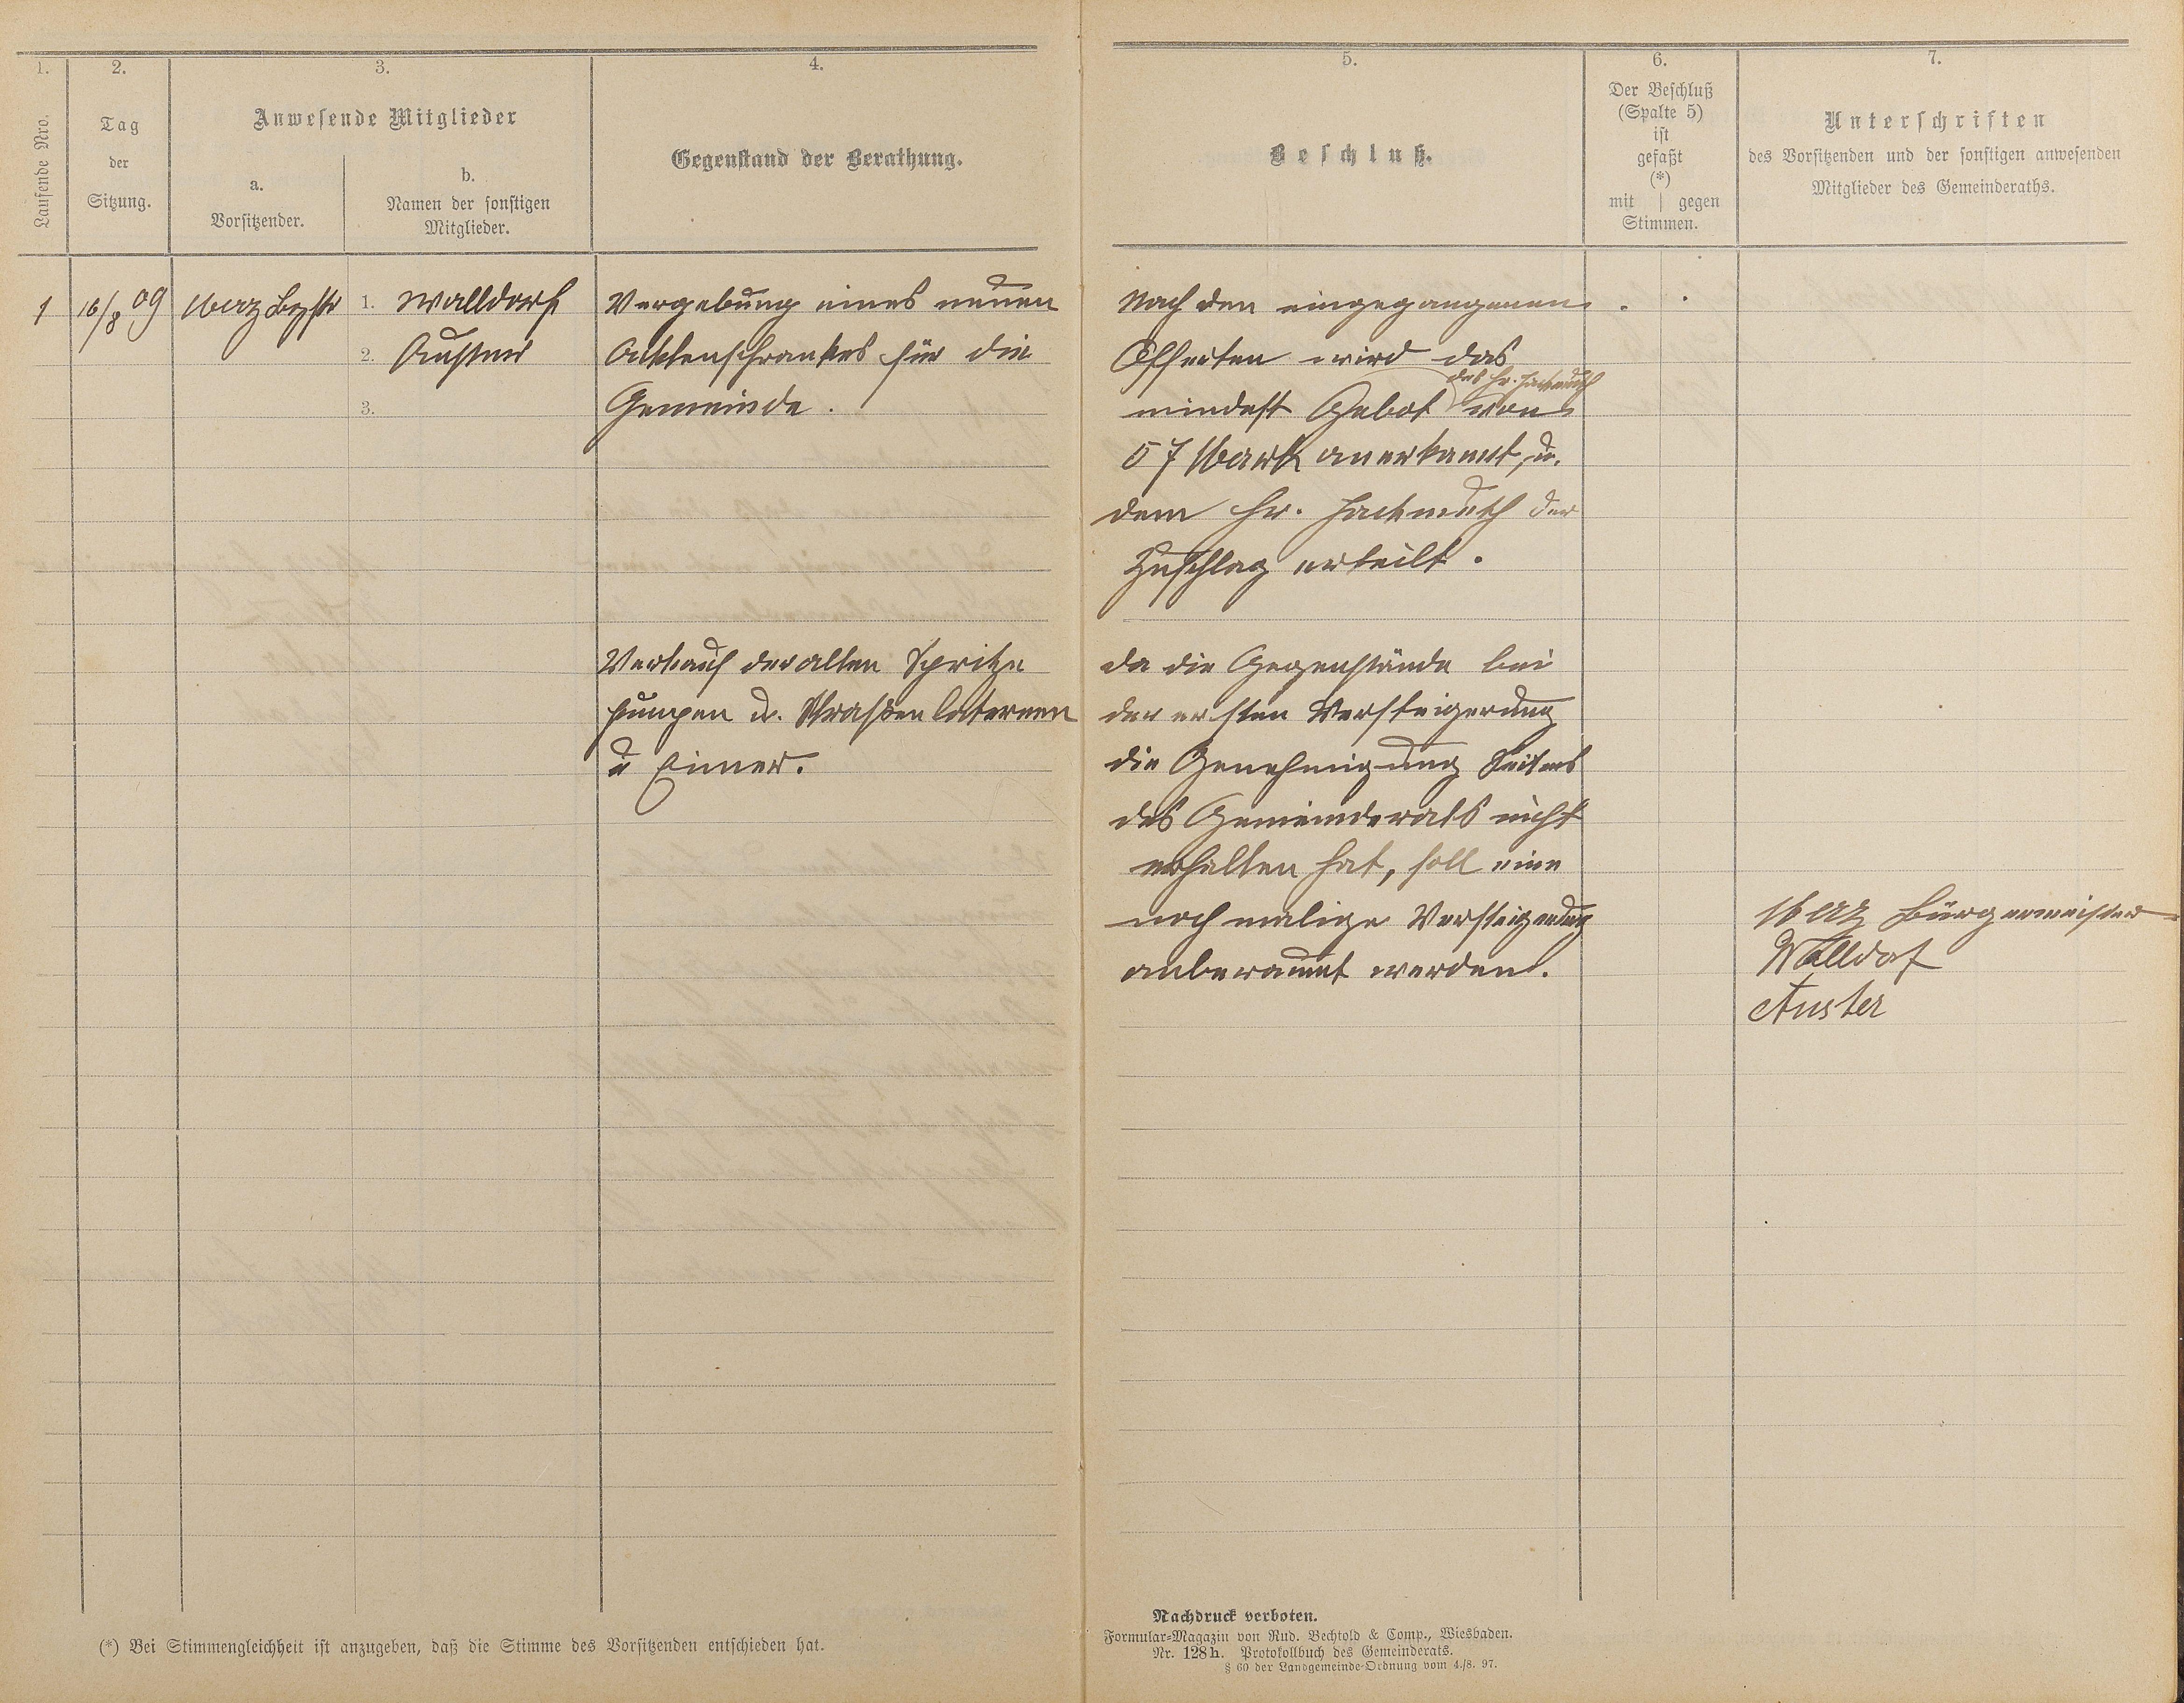 1.
2.
3.
4.
Laufende Nro.
Tag
der
Sitzung.
Anwesende Mitglieder
a.
Vorsitzender.
b.
Namen der sonstigen
Mitglieder.
Gegenstand der Berathung.
1 16/8 09 Merz Bgstr 1. Walldorf Vergebung eines neuen
2. Auster Acktenschrankes für die
3. Gemeinde.
Verkauf der alten Spritze
pumpen u. Straßenlaternen
u Eimer.
(*) Bei Stimmengleichheit ist anzugeben, daß die Stimme des Vorsitzenden entschieden hat.
5.
6.
7.
Beschluß.
Der Beschluß
(Spalte 5)
ist
gefaßt
(*)
mit | gegen
Stimmen.
Unterschriften
des Vorsitzenden und der sonstigen anwesenden
Mitglieder des Gemeinderaths.
Nach den eingegangenen
Offerten wird das
des Hr. Hackmuth
mindest Gebot von
57 Mark anerkannt, u.
dem Hr. Hackmuth der
Zuschlag erteilt.
da die Gegenstände bei
der ersten Versteigerung
die Genehmigung seitens
des Gemeinderats nicht
erhalten hat, soll eine
noch malige Versteigerung
anberaumt werden.
Merz Bürgermeister
Walldorf
Auster
Nachdruck verboten.
Formular-Magazin von Rud. Bechtold & Comp., Wiesbaden.
Nr. 128h. Protokollbuch des Gemeinderats.
§ 60 der Landgemeinde-Ordnung vom 4./8. 97.